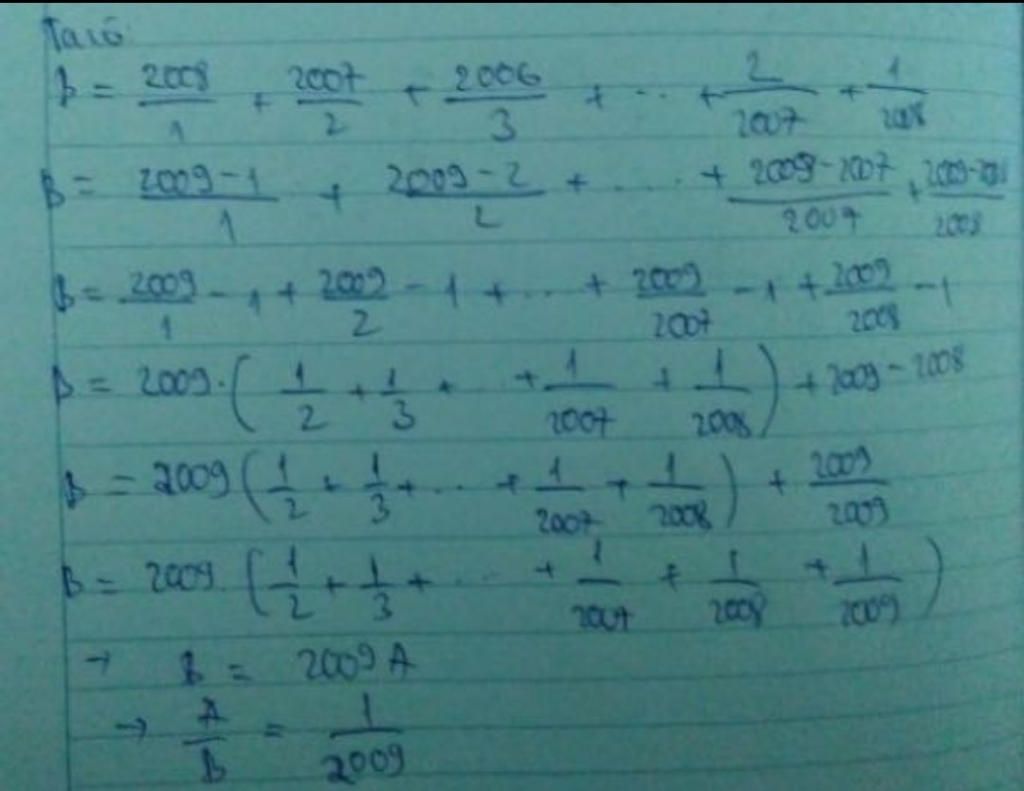 Ta có:
B = 2008/1 + 2007/2 + 2006/3 + ... + 2/2007 + 1/2008
B = (2009-1)/1 + (2009-2)/2 + ... + (2009-2007)/2007 + (2009-2008)/2008
B = 2009/1 - 1 + 2009/2 - 1 + ... + 2009/2007 - 1 + 2009/2008 - 1
B = 2009.(1/2 + 1/3 + ... + 1/2007 + 1/2008) + 2009 - 2008
B = 2009(1/2 + 1/3 + ... + 1/2007 + 1/2008) + 2009/2009
B = 2009.(1/2 + 1/3 + ... + 1/2007 + 1/2008 + 1/2009)
→ B = 2009A
→ A/B = 1/2009